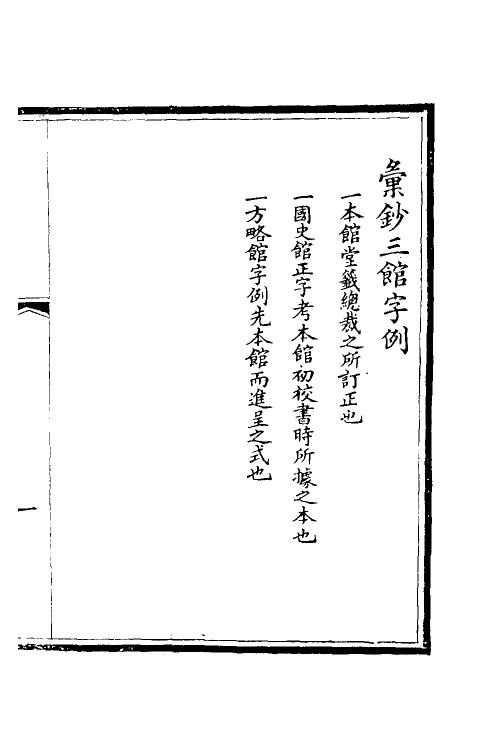 彙鈔三館字例
一本館堂籤總裁之所訂正也
一國史館正字考本館初校書時所據之本也
一方略館字例先本館而進呈之式也
一